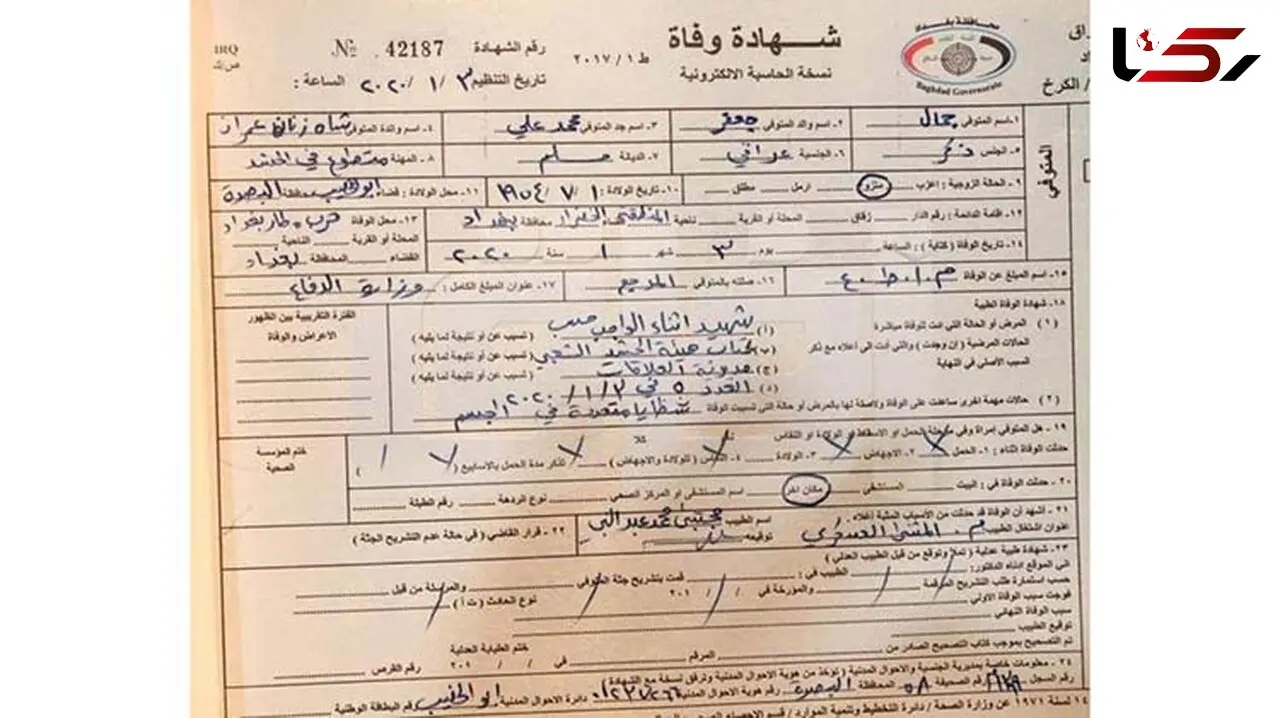 رکنا
IRQ
№ 42187 رقم الشهادة
شـــهادة وفاة
ط ١ / ٢٠١٧
نسخة الحاسبة الالكترونية
تاريخ التنظيم ٣ / ١ / ٢٠٢٠ الساعة :
محافظة بغداد
Baghdad Governorate
/ الكرخ
المتوفي
١- اسم المتوفي جمال ٢- اسم والد المتوفي جعفر ٣- اسم جد المتوفي محمد علي ٤- اسم والدة المتوفي شاه زنان عمران
٥- الجنس ذكر ٦- الجنسية عراقي ٧- الديانة مسلم ٨- المهنة متطوع في الحشد
٩- الحالة الزوجية : اعزب متزوج ارمل مطلق ١٠- تاريخ الولادة : ١ / ٧ / ١٩٥٤ ١١- محل الولادة : قضاء ابو الخصيب محافظة البصرة
١٢- اقامة الدائمة : رقم الدار زقاق المحلة أو القرية ناحية الخضراء محافظة بغداد ١٣- محل الوفاة قرب مطار بغداد
المحلة أو القرية الناحية
١٤- تاريخ الوفاة ( كتابة ) : الساعة يوم ٣ شهر ١ سنة ٢٠٢٠ القضاء المحافظة بغداد
١٥- اسم المبلغ عن الوفاة م . ا . ط . ع ١٦- صلته بالمتوفي ١٧- عنوان المبلغ الكامل : وزارة الدفاع
١٨- شهادة الوفاة الطبية
( ١ ) المرض أو الحالة التي ادت للوفاة مباشرة
الحالات المرضية ( إن وجدت ) والتي أدت الى أعلاه مع ذكر
السبب الأصلي في النهاية
(أ) شهيد اثناء الواجب حسب ( تسبب عن أو نتيجة لما يليه )
(ب) كتاب هيئة الحشد الشعبي ( تسبب عن أو نتيجة لما يليه )
(ج) مديرية العلاقات ( تسبب عن أو نتيجة لما يليه )
(د) العدد ٥ في ٣ / ١ / ٢٠٢٠
الفترة التقريبية بين الظهور
الاعراض والوفاة
( ٢ ) حالات مهمة اخرى ساعدت على الوفاة ولاصلة لها بالمرض أو حالة التي تسببت الوفاة شظايا متعددة في الجسم
١٩- هل المتوفي إمراة وفي مرحلة الحمل او الاسقاط او الولادة او النفاس كلا
حدثت الوفاة أثناء : ١- الحمل ٢- الاجهاض ٣- الولادة ٤- النفاس ( للولادة والاجهاض ) تذكر مدة الحمل بالاسابيع ( )
ختم المؤسسة
الصحية
٢٠- حدثت الوفاة في : البيت المستشفى مكان اخر اسم المستشفى او المركز الصحي نوع الردهة رقم الطبلة
٢١- أشهد أن الوفاة قد حدثت من الأسباب المثبتة أعلاه .
عنوان اشتغال الطبيب م . المثنى العسكري
اسم الطبيب مجتبى محمد عبد النبي
توقيعه
٢٢- قرار القاضي ( في حالة عدم التشريح الجثة )
٢٣- شهادة طبية عدلية ( تملأ وتوقع من قبل الطبيب العدلي )
الى الموقع ادناه الدكتور: الطبيب في : قمت بتشريح جثة المتوفي والمرسلة من قبل
حسب استمارة طلب التشريح المرقمة والمؤرخة في / / ٢٠١ نوع الحادث ( ت أ )
فوجت سبب الوفاة الاولي
سبب الوفاة النهائي
توقيع الطبيب
تم التصحيح بموجب كتاب التصحيح الصادر من المرقم في / / ٢٠١ ختم الطبابة العدلية رقم القرص
٢٤- معلومات خاصة بمديرية الجنسية والاحوال المدنية ( تؤخذ من هوية الاحوال المدنية وترفق نسخة مع الشهادة )
رقم السجل رقم الصحيفة ٥٨ المحافظة البصرة رقم هوية الاحوال المدنية دائرة الاحوال المدنية : ابو الخصيب رقم البطاقة الوطنية